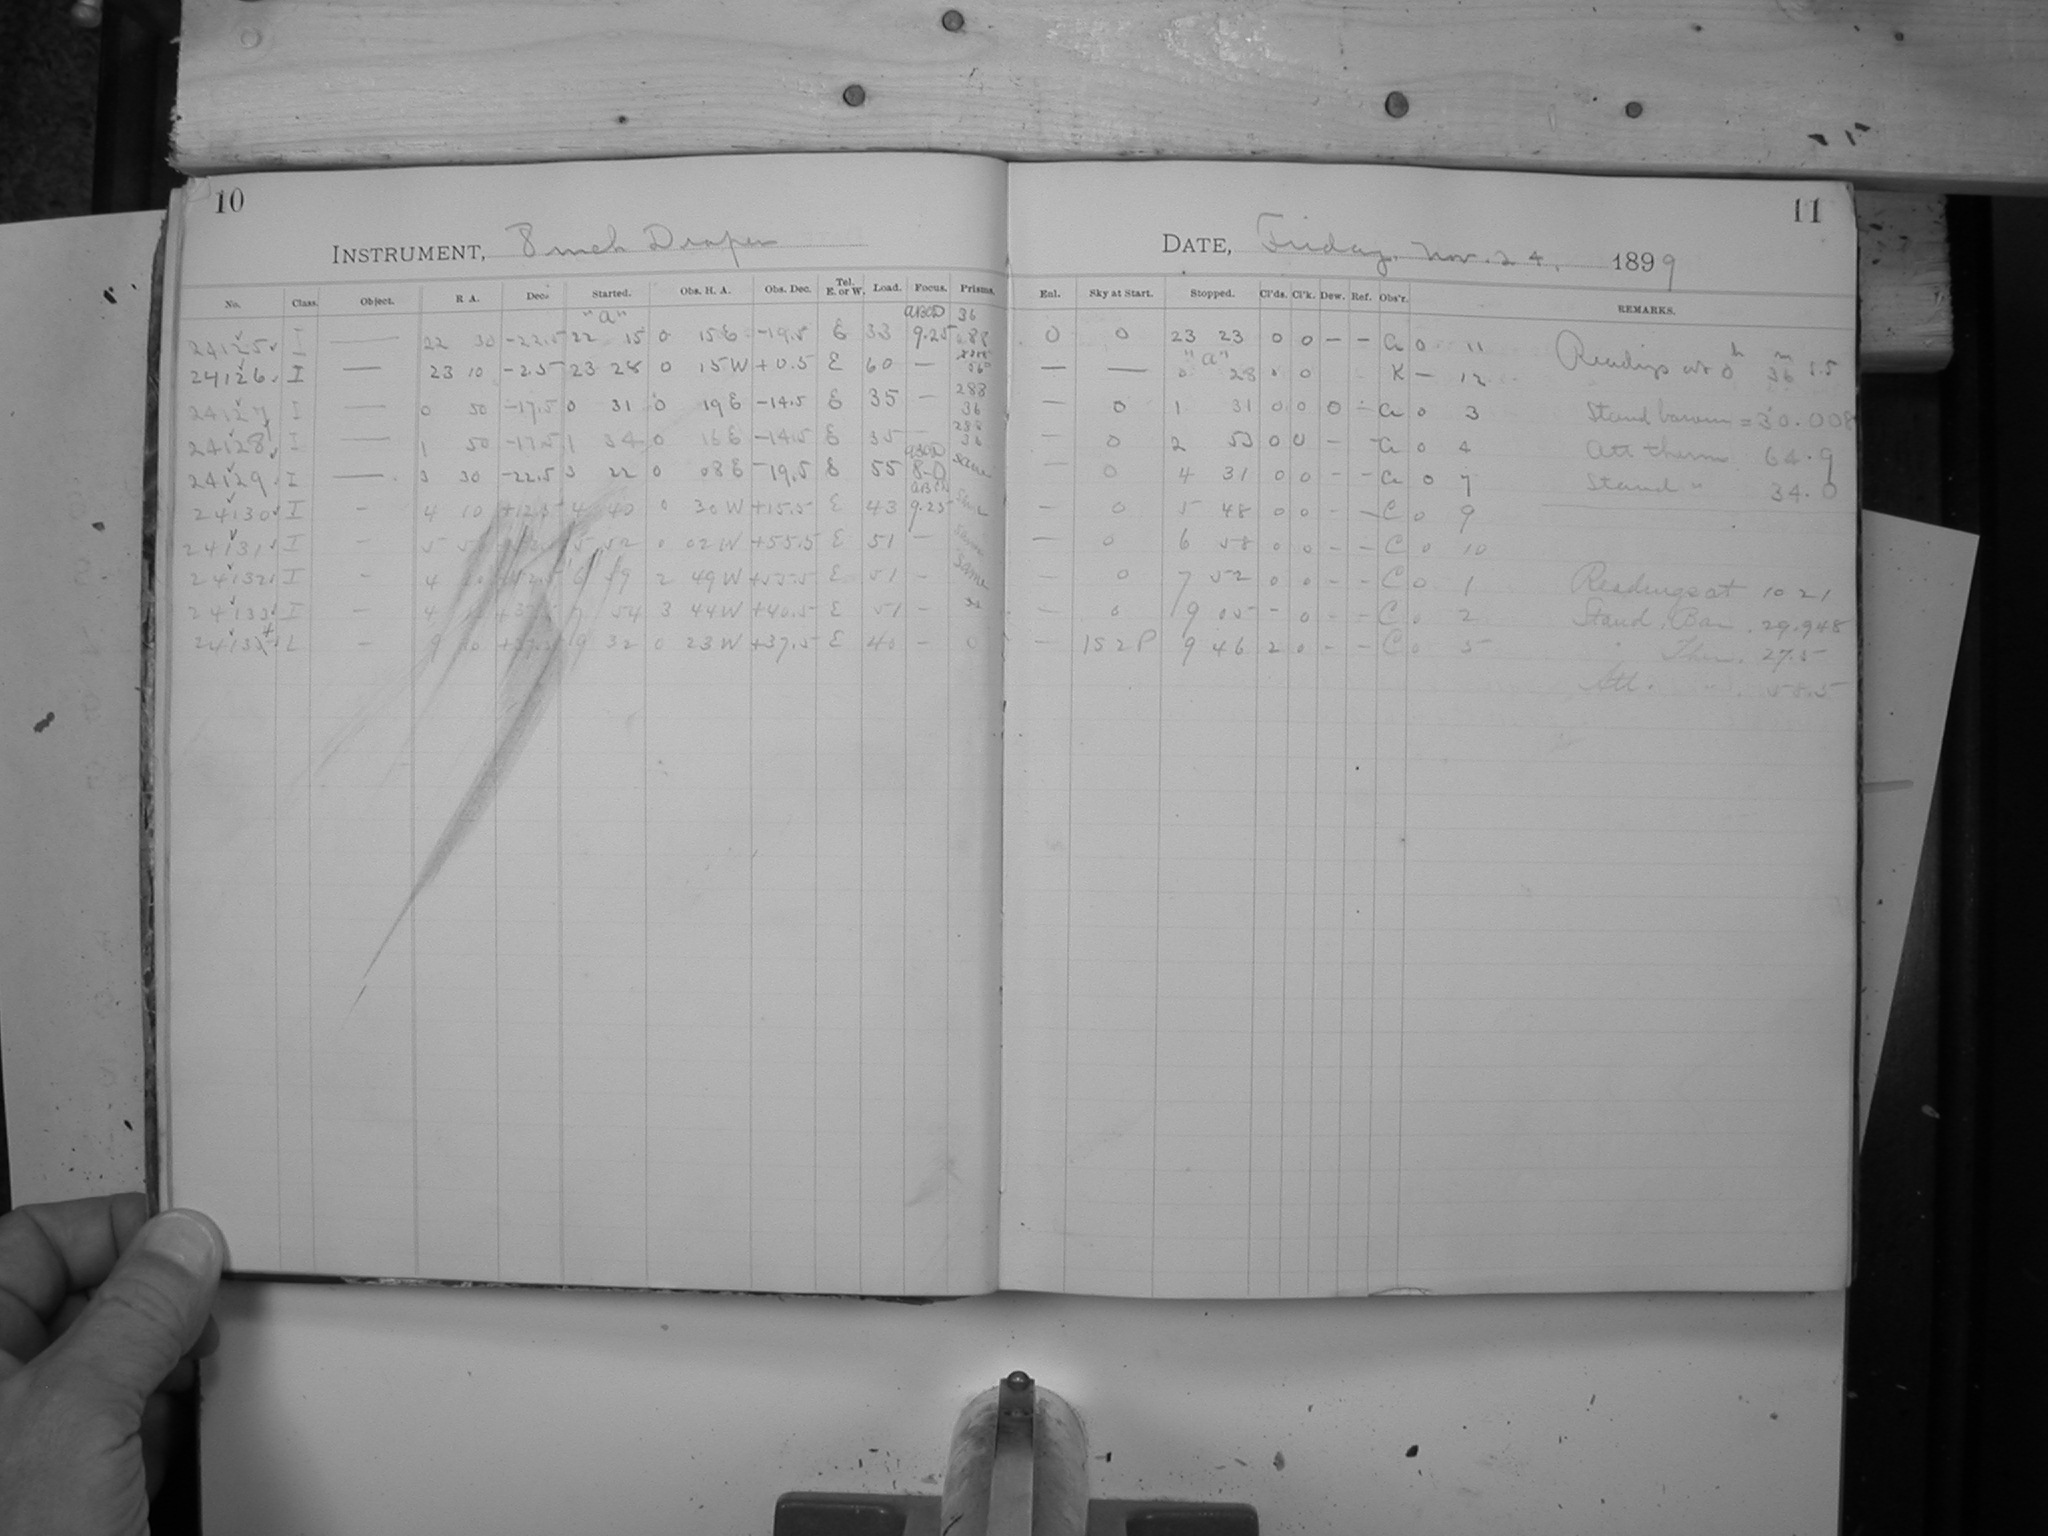 10
11
INSTRUMENT, 8 inch Draper
DATE, Friday, Nov. 24, 1899
No. Class. Object. R A. Dec. Started. Obs. H. A. Obs. Dec. Tel. E. or W. Load. Focus. Prisms. Enl. Sky at Start. Stopped. Cl'ds. Cl'k. Dew. Ref. Obs'r. REMARKS.
"a" ABCD 36
24125 I — 22 30 -22.5 22 15 0 15 E -19.5 E 33 9.25 288 0 0 23 23 0 0 - - 0 11 Readings at 0 h 36 m
24126 I — 23 10 -2.5 23 28 0 15 W +0.5 E 60 — — — "a" 0 28 0 0 K — 12
24127 I — 0 50 -17.5 0 31 0 19 E -14.5 E 35 — 288 36 — 0 1 31 0 0 0 - 0 3 Stand barom = 30.008
24128 I — 1 50 -17.5 1 34 0 16 E -14.5 E 35 — 288 36 — 0 2 53 0 0 - - 0 4 Att therm 64.9
24129 I — 3 30 -22.5 3 22 0 08 E -19.5 E 55 ABCD 8-0 same — 0 4 31 0 0 - - 0 7 Stand " 34.0
24130 I - 4 10 +12.5 4 40 0 30 W +15.5 E 43 ABCD 9.25 same — 0 5 48 0 0 - - C 0 9
24131 I - 5 5 52 0 02 W +55.5 E 51 - same — 0 6 58 0 0 - - C 0 10
24132 I - 4 +52.5 6 59 2 49 W +55.5 E 51 - same — 0 7 52 0 0 - - C 0 1 Readings at 10 21
24133 I - 4 +37.5 7 54 3 44 W +40.5 E 51 - — 0 9 05 - 0 - - C 0 2 Stand. Bar. 29.948
L - 9 10 +37.5 9 32 0 23 W +37.5 E 40 - 0 — 1S 2P 9 46 2 0 - - C 0 5 " Ther. 27.5
Att. " 58.5